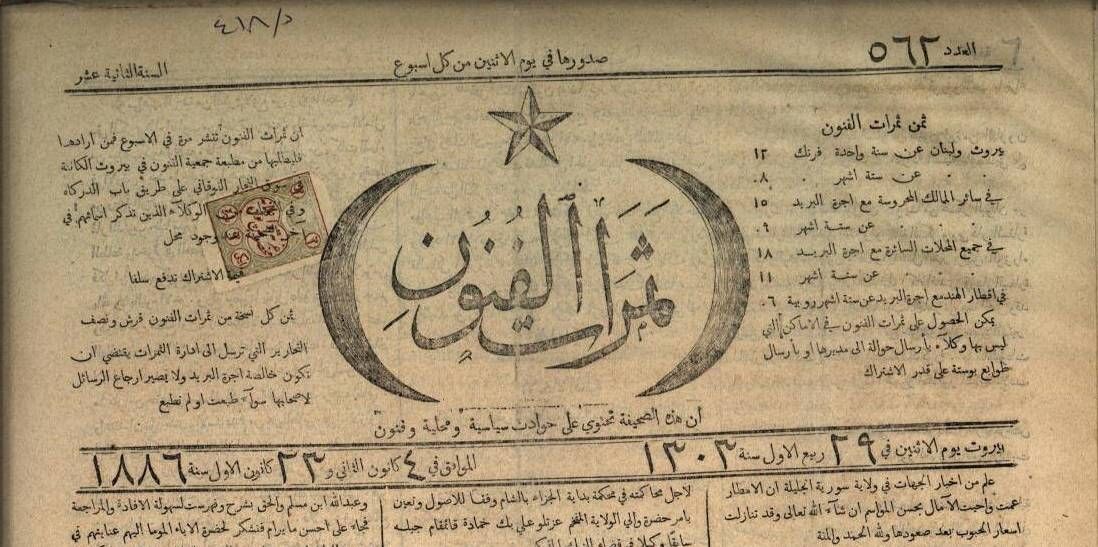 د/٤١٨
العدد ٥٦٢
صدورها في يوم الاثنين من كل اسبوع
السنة الثانية عشر
ثمن ثمرات الفنون
بيروت ولبنان عن سنة واحدة فرنك ١٢
عن ستة اشهر ٠٨
في سائر الممالك المحروسة مع اجرة البريد ١٥
عن ستة اشهر ٠٩
في جميع المحلات السائرة مع اجرة البريد ١٨
عن ستة اشهر ١١
في اقطار الهند مع اجرة البريد عن ستة اشهر روبية ٠٦
يمكن الحصول على ثمرات الفنون في الاماكن التي
ليس بها وكلاء بأرسال حوالة الى مديرها او بأرسال
طوابع بوستة على قدر الاشتراك
ثمرات الفنون
ان ثمرات الفنون تنشر مرة في الاسبوع فمن ارادها
فليطلبها من مطبعة جمعية الفنون في بيروت الكائنة
في سوق التجار الفوقاني على طريق باب الدركاه
وفي الوكلاء الذين تذكر اسماؤهم في
وجود محل
قيمة الاشتراك تدفع سلفا
ثمن كل نسخة من ثمرات الفنون قرش ونصف
التحارير التي ترسل الى ادارة الثمرات يقتضي ان
تكون خالصة اجرة البريد ولا يصير ارجاع الرسائل
لاصحابها سواء طبعت او لم تطبع
ان هذه الصحيفة تحتوي على حوادث سياسية ومحلية وفنون
بيروت يوم الاثنين في ٢٩ ربيع الاول سنة ١٣٠٣
الموافق في ٤ كانون الثاني و ٢٣ كانون الاول سنة ١٨٨٦
علم من اخبار الجهات في ولاية سورية الجليلة ان الامطار
عمت واحيت الآمال بحسن المواسم ان شاء الله تعالى وقد تنازلت
اسعار الحبوب بعد صعودها ولله الحمد والمنة
لاجل محاكمته في محكمة بداية الجزاء بالشام وفقا للاصول وتعين
بامر حضرة والي الولاية المفخم عزتلو علي بك حمادة قائمقام جبلة
سابقا وكيلا في
وعبد الله ابن مسلم والحق بشرح وفهرست لسهولة الافادة والمراجعة
فجاء على احسن ما يرام فنشكر لحضرة الاباء الموما اليهم عنايتهم في